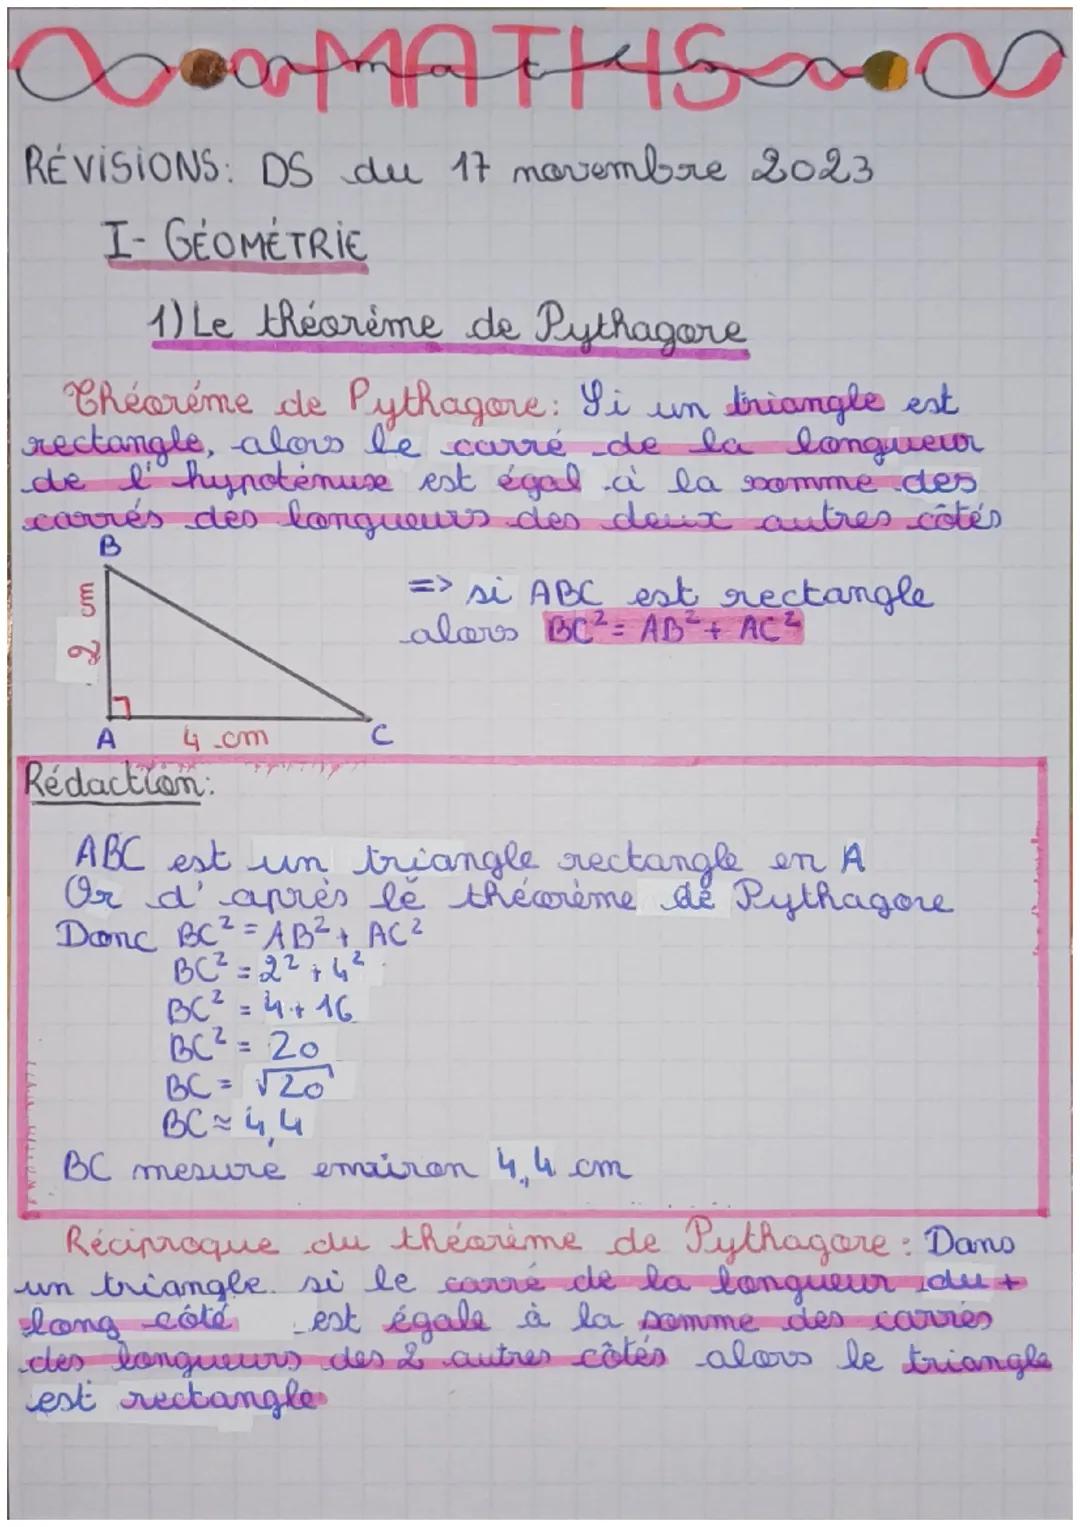 MATHS
maths
RÉVISIONS: DS du 17 novembre 2023
I- GÉOMÉTRIE
1) Le théorème de Pythagore
Théoréme de Pythagore: Si un triangle est
rectangle, alors le carré de la longueur
de l'hypoténuse est égal à la somme des
carrés des longueurs des deux autres côtés
B
2 cm
A
4 cm
C
=> si ABC est rectangle
alors BC² = AB² + AC²
Rédaction:
ABC est un triangle rectangle en A
Or d'après le théorème de Pythagore
Donc BC² = AB² + AC²
BC² = 2² + 4²
BC² = 4 + 16
BC² = 20
BC = √20
BC ≈ 4,4
BC mesure environ 4,4 cm
Réciproque du théorème de Pythagore: Dans
un triangle. si le carré de la longueur du +
long côté est égale à la somme des carrés
des longueurs des 2 autres côtés alors le triangle
est rectangle